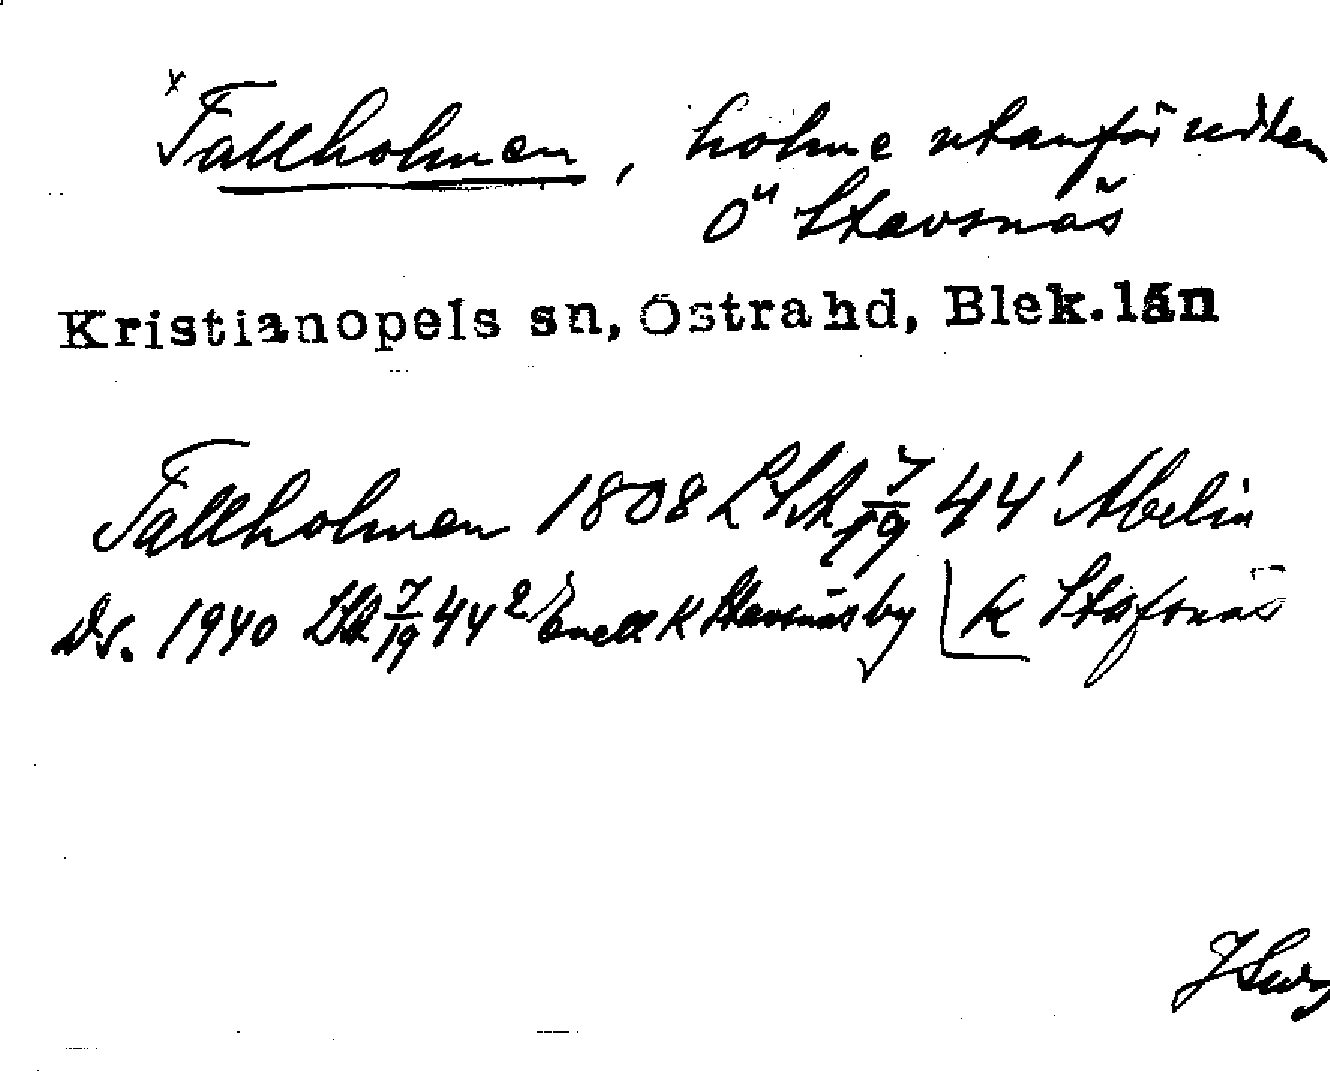 x
Tallholmen, holme utanför udden
Ö" Stavsnäs
Kristianopels sn, Östra hd, Blek. län
Tallholmen 1808 LSA 7/19 44¹ Abelin
Ds. 1940 LSA 7/19 44² Enell K Stavsnäs by K Stafsnäs